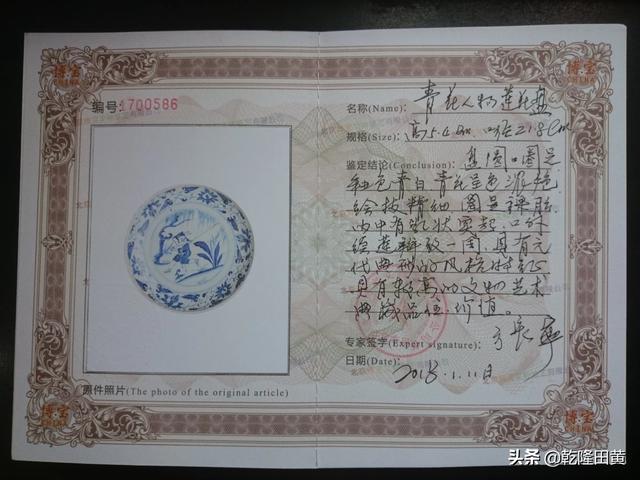 博宝
博宝
编号:1700586
名称(Name): 青花人物莲花盘
规格(Size): 高5.4cm 口径21.8cm
鉴定结论(Conclusion): 盘圆口圈足
釉色青白青花呈色深艳
绘技精细 圈足裸胎
内中有乳状突起,口外
绘莲瓣纹一周,具有元
代典型的风格特征
具有较高的文物艺术
典藏品位、价值。
专家签字(Expert signature):
日期(Date): 2018.1.11日
原件照片(The photo of the original article)
博宝
博宝
头条 @乾隆田黄